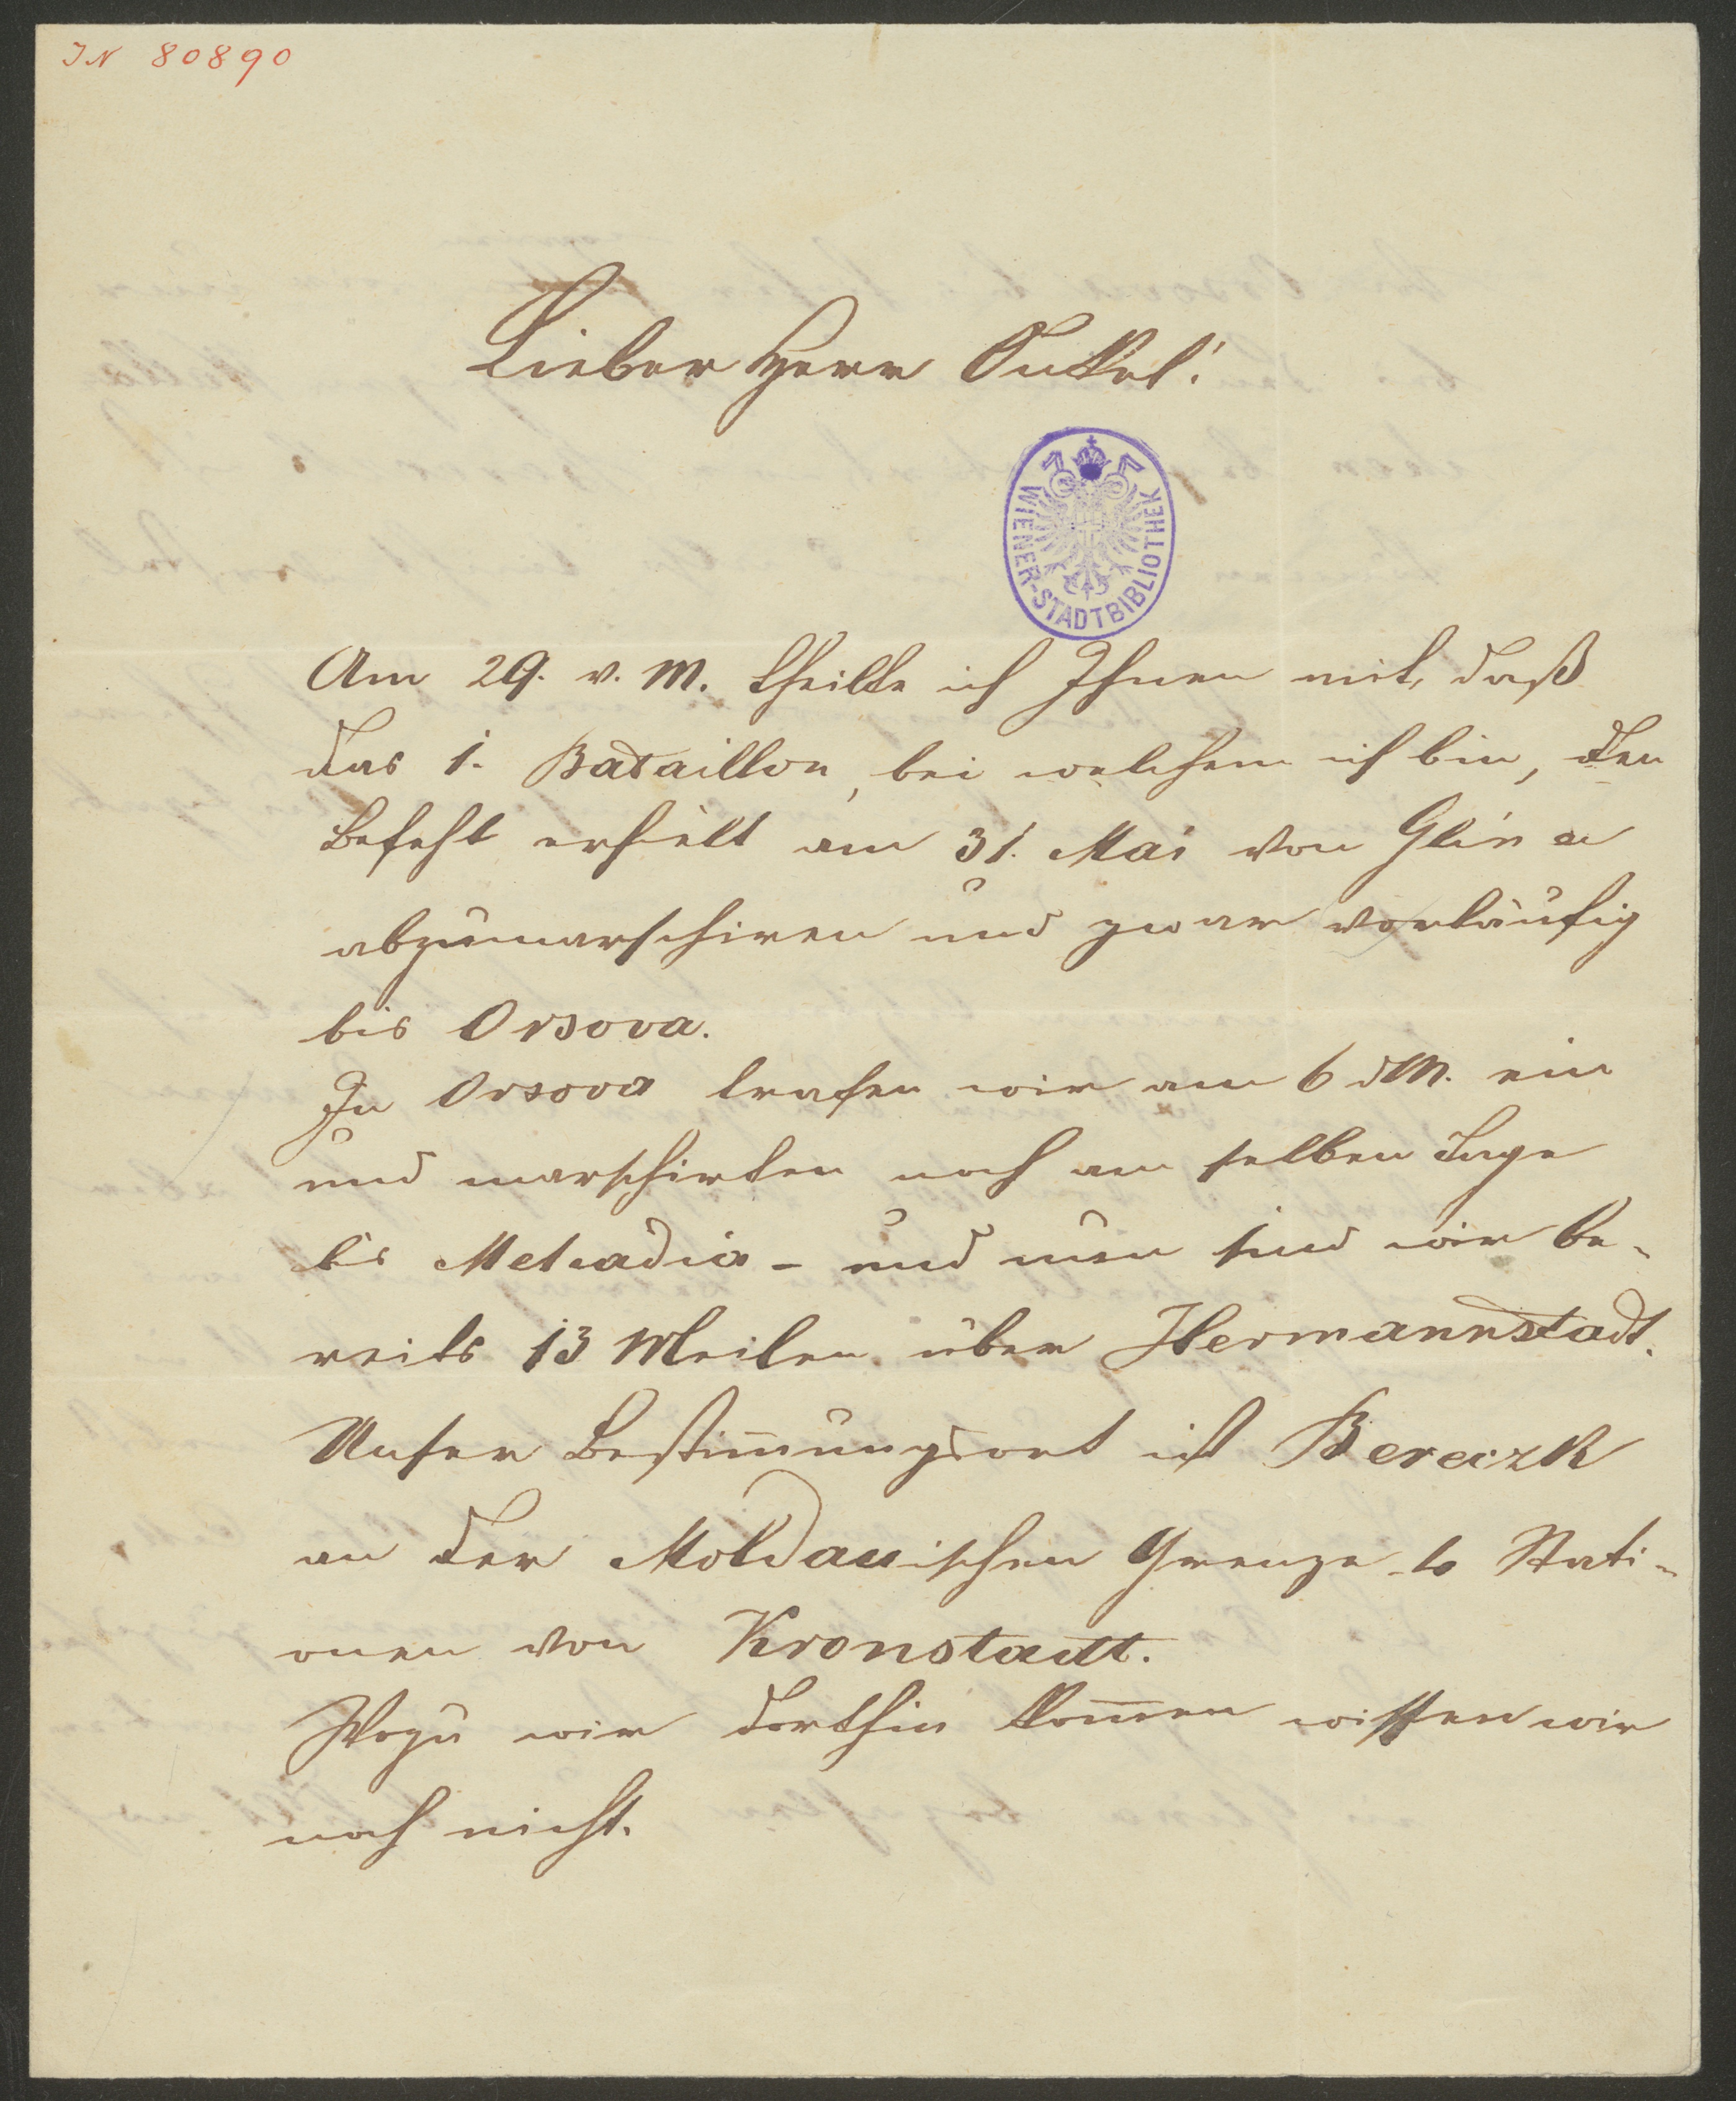 IN 80890
Lieber Herr Onkel!
WIENER-STADTBIBLIOTHEK
Am 29. v. M. theilte ich Ihnen mit, daß
das 1. Bataillon, bei welchem ich bin, den
Befehl erhielt am 31. Mai von Glina
abzumarschiren und zwar vorläufig
bis Orsova.
In Orsova trafen wir am 6 d M. ein
und marschirten noch am selben Tage
bis Mehadia - und nun sind wir be-
reits 13 Meilen über Hermannstadt.
Unser Bestim̄ungsort ist Bereczk
an der Moldauischen Grenze 6 Stati-
onen von Kronstadt.
Wozu wir dorthin kom̄en wissen wir
noch nicht.